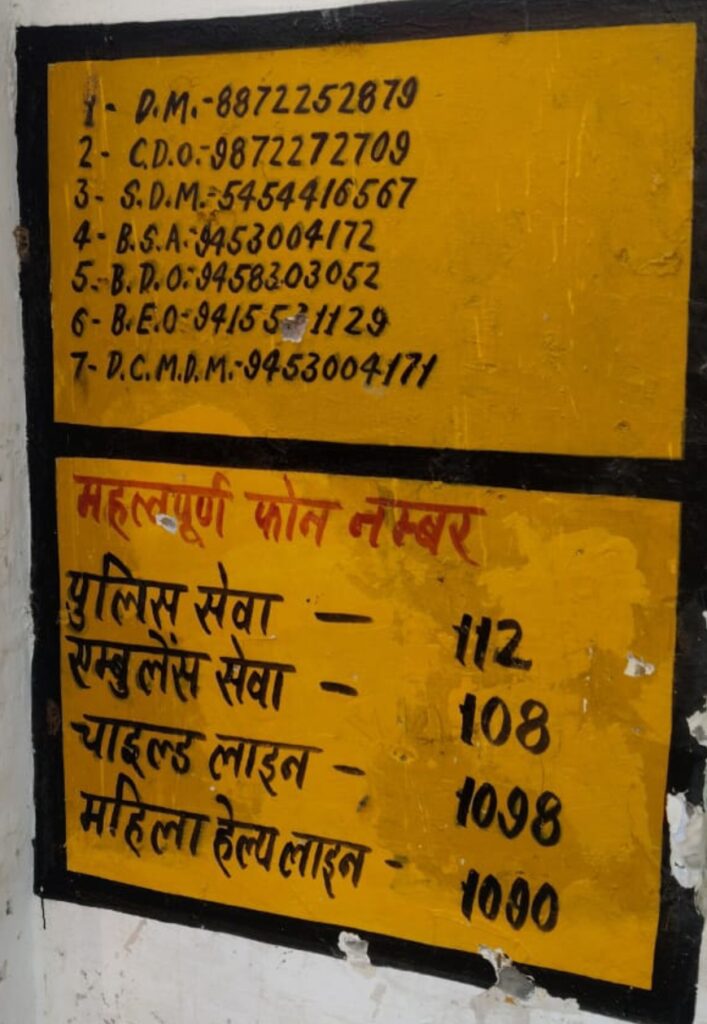 1- D.M.-8872252879
2- C.D.O.-9872272709
3- S.D.M.-5454416567
4- B.S.A.-9453004172
5- B.D.O.-9458303052
6- B.E.O-
7- D.C.M.D.M.-9453004171
महत्वपूर्ण फोन नम्बर
पुलिस सेवा — 112
एम्बुलेंस सेवा - 108
चाइल्ड लाइन - 1098
महिला हेल्प लाइन - 1090